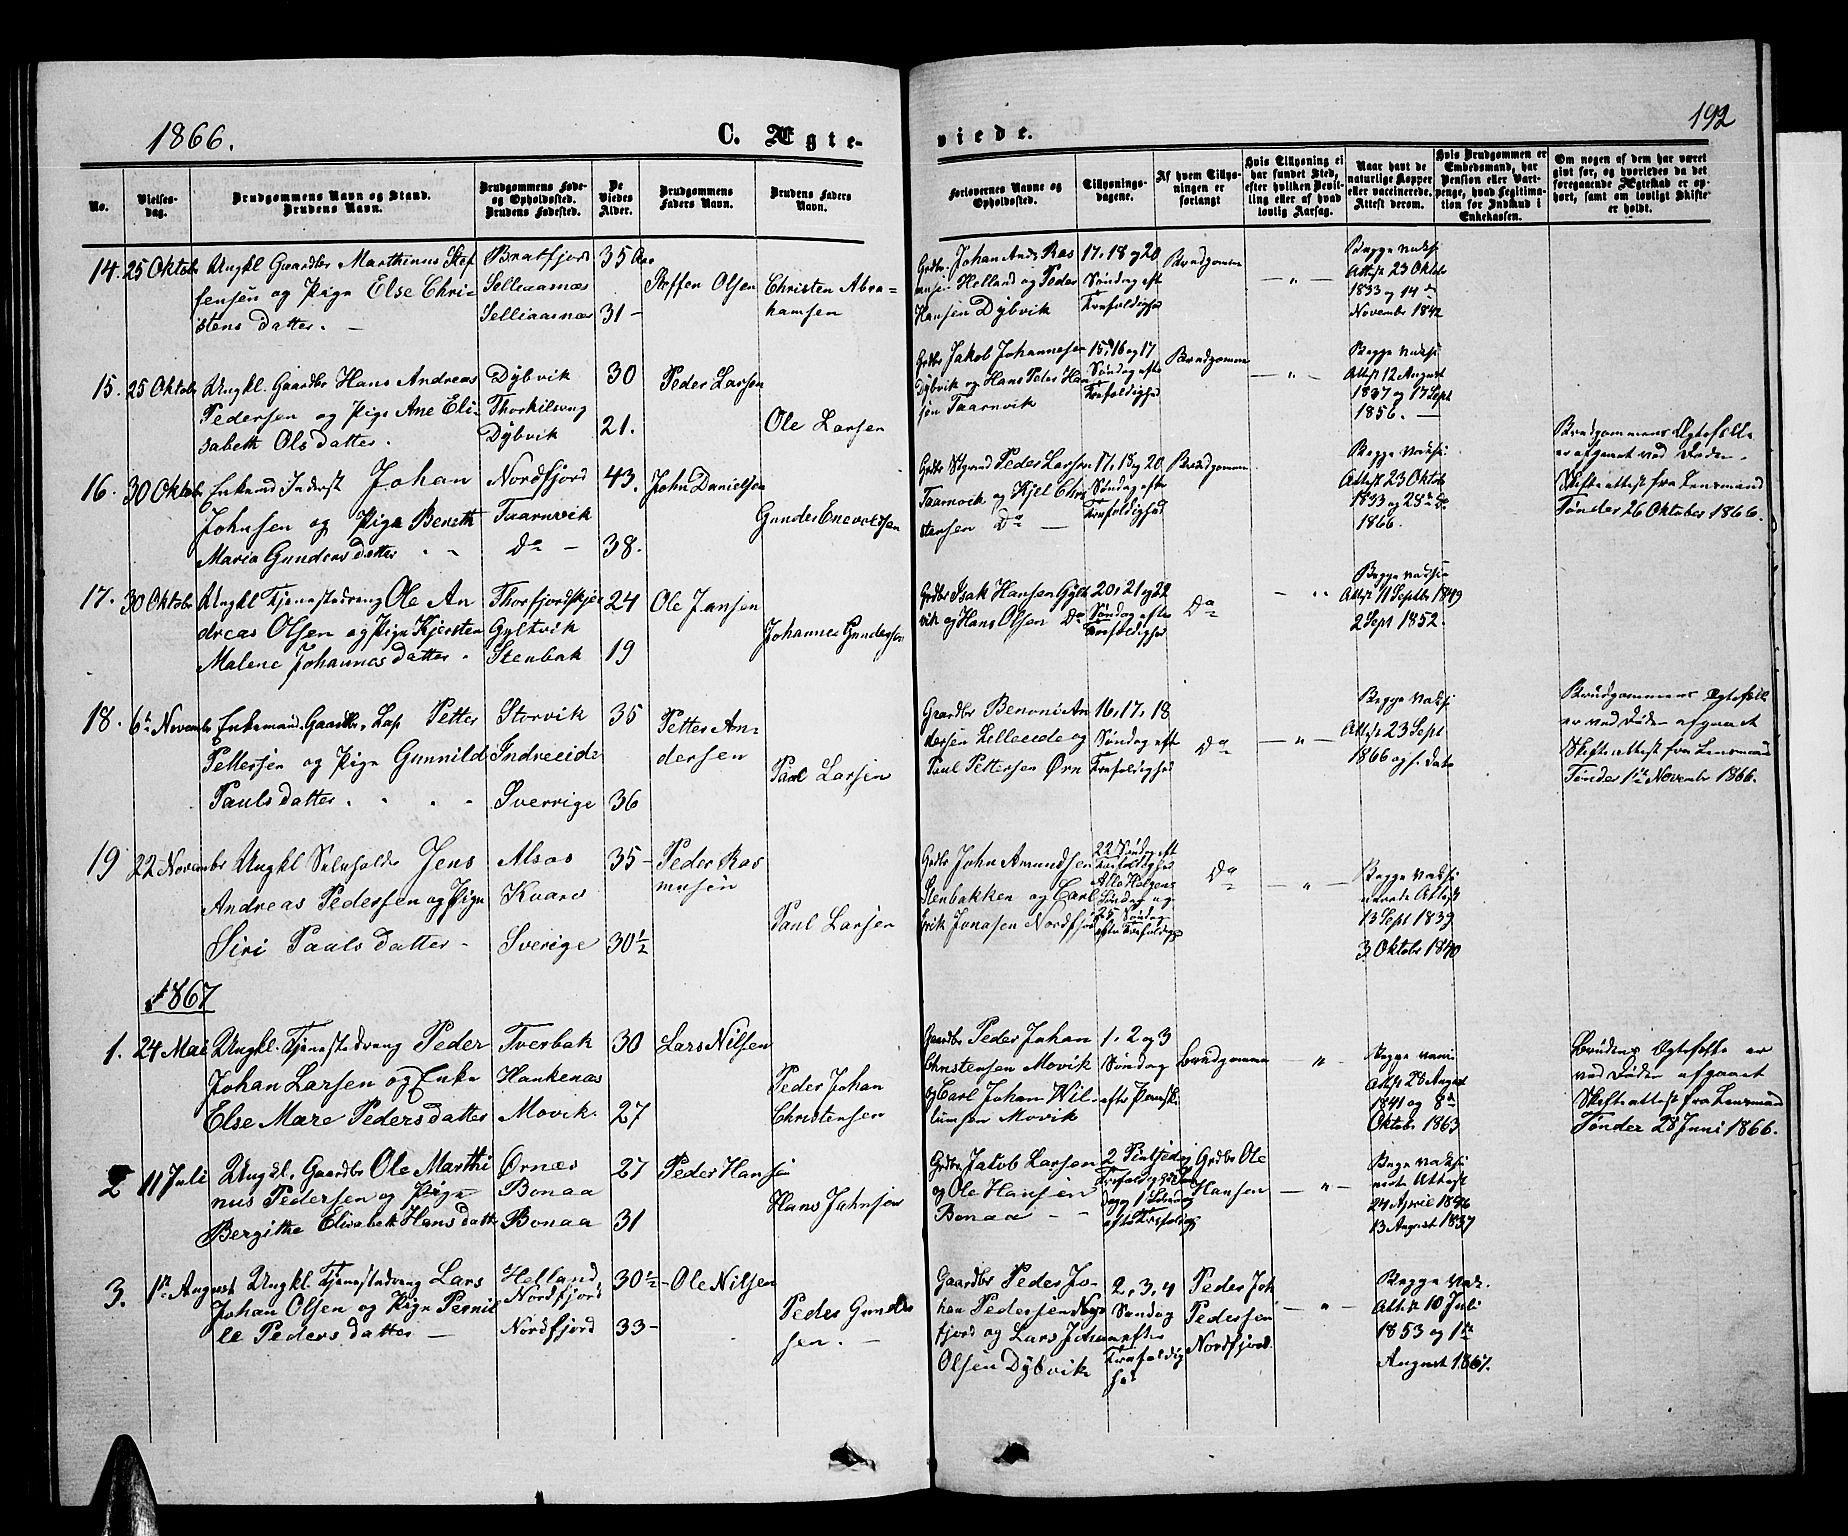 1866.
C. Ægte-
viede.
192
No.
Vielses-
dag.
Brudgommens Navn og Stand.
Brudens Navn.
Brudgommens Føde-
og Opholdssted.
Brudens Fødested.
De
Viedes
Alder.
Brudgommens
Faders Navn.
Brudens Faders
Navn.
Forlovernes Navne og
Opholdssted.
Tillysnings-
dagene.
Af hvem Tillys-
ningen er
forlangt
Hvis Tillysning ei
har fundet Sted,
efter hvilken Bevil-
ling eller af hvad
lovlig Aarsag.
Naar havt de
naturlige Kopper
eller vaccinerede.
Attest derom.
Hvis Brudgommen er
Embedsmand, har
Pension eller Vart-
penge, hvad Legitima-
tion for Indskud i
Enkekassen.
Om nogen af dem har været
givt før, og hvorledes da det
foregaaende Ægteskab er op-
hørt, samt om lovligt Skifte
er holdt.
14. 25 Oktobr Ungkl Gaardbr Marthinus Stef
fensen og Pige Else Chri-
stens datter. —
Bratfjord
Selliaasnæs
Selliaasnæs
35 Aar
31 —
Steffen Olsen
Christen Abra-
hamsen
Grdbr Johan Ands Ras
Helland og Peder
Hansen Dybvik
17, 18 og 20
Søndag eft
Trefoldighed
Brudgommen
— " —
Begge vaksi
Attest 23 Oktob
1833 og 14de
November 1842
15. 25 Oktobr Ungkl. Gaardbr Hans Andreas
Pedersen og Pige Ane Eli-
sabeth Ols datter.
Dybvik
Thorkilseng
Dybvik
30
21.
Peder Larsen
Ole Larsen
Grdbr Jakob Johannesen
Dybvik og Hans Peder Han
sen Taarnvik
15, 16 og 17
Søndag efter
Trefoldighed
Brudgommen
— " —
Begge vaksi
Attest 12 August
1837 og 17 Sept
1856. —
16. 30 Oktobr Enkemd Inderst Johan
Johnsen og Pige Bereth
Maria Gunders datter
Nordfjord
Taarnvik
Do —
43.
38.
John Danielsen
Gunder Enevoldsen
Peder Larsen
Taarnvik og Kjel Chri
stensen Do —
17, 18 og 20
Søndag efter
Trefoldighed
Brudgommen
Begge vaksi
Attest 23 Oktob
1833 og 28de Do
1866.
Brudgommens Ægtefælle
er afgaaet ved Døden.
Skifteattest fra Lensmand
Tønder 26 Oktober 1866.
17. 30 Oktobr Ungkl Tjenestedreng Ole An
dreas Olsen og Pige Kjersten
Malene Johannes datter.
Thorfjordskjer
Gyltvik
Stenbak
24
19
Ole Jansen
Johannes Gundersen
Grdbr Isak Hansen Gylt
vik og Hans Olsen Do
20, 21 og 22
Søndag efter
Trefoldighed
Do
Begge vaksi
Attest 11 Septbr 1849
2 Sept 1852.
18. 6te Novembr Enkemand, Gaardbr, Lap Petter
Pettersen og Pige Gunnild
Pauls datter.
Storvik
Indreeide
Sverrige
35
36
Petter An-
dersen
Paul Larsen
Gaardbr Benoni An
dersen og
Paul Pettersen Ørn
16, 17, 18
Søndag eft
Trefoldighed
Do
— " —
Begge vaksi
Attest 23 Sept
1866 og s. Dato
Brudgommens Ægtefælle
er ved Døden afgaaet
Skifteattest fra Lensmand
Tønder 1ste November 1866.
19 22 Novembr Ungkl Jens
Andreas Pedersen og Pige
Siri Pauls datter —
Alsos
Kvarv
Sverige
35 —
30½
Peder Ras
musen
Paul Larsen
Grdbr John Amundsen
Stenbakken og Carl
Jonasen Nordfjord
22 Søndag eft
Trefoldighed
Alle Helgens
Søndag og
25 Søndag
efter Trefoldigh
Do
— " —
Begge vaksi
nerede Attest
13 Sept 1839
3 Oktobr 1840
1867
1. 24 Mai Ungkl. Tjenestedreng Peder
Johan Larsen og Enke
Else Mare Peders datter
Tverbak
Hankenæs
Movik.
30
27
Lars Nilsen
Peder Johan
Christensen
Gaardbr Peder Johan
Christensen Movik
og Carl Johan Wil-
lumsen Movik
1, 2 og 3
Søndag
efter Paaske
Brudgommen
— " —
Begge vaxi
Attest 28 August
1841 og 8de
Oktobr 1863
Brudens Ægtefelle er
ved Døden afgaaet
Skifteattest fra Lensmand
Tønder 28 Juni 1866.
2 11 Juli Ungkl. Gaardbr Ole Marthi
nus Pedersen og Pige
Bergithe Elisabeth Hans datter
Ørnæs
Bonaa
Bonaa
27
31
Peder Hansen
Hans Jahnsen
Grdbr Jakob Larsen
og Ole Hansen
Bonaa — —
2 Pintsedag
Trefoldighedssøn
dag og 1 Søndag
efter Trefoldigh
Grdbr Ole
Hansen
— " —
Begge vaksi
nerte Attest
24 April 1846
13 August 1837
3. 1ste August Ungkl. Tjenestedreng Lars
Johan Olsen og Pige Pernil
le Peders datter —
Helland,
Nordfjord
Nordfjord
30½ —
33 —
Ole Nilsen
Peder Gunder
sen. —
Gaardbr Peder Jo-
han Pedersen Nor
fjord og Lars Johan
Olsen Dybvik
2, 3, 4
Søndag
efter
Trefoldig
hed
Peder Joh
Pedersen
Nordfjord.
— " —
Begge vak.
Attest 10 Juli
1853 og 1ste
August 1867.